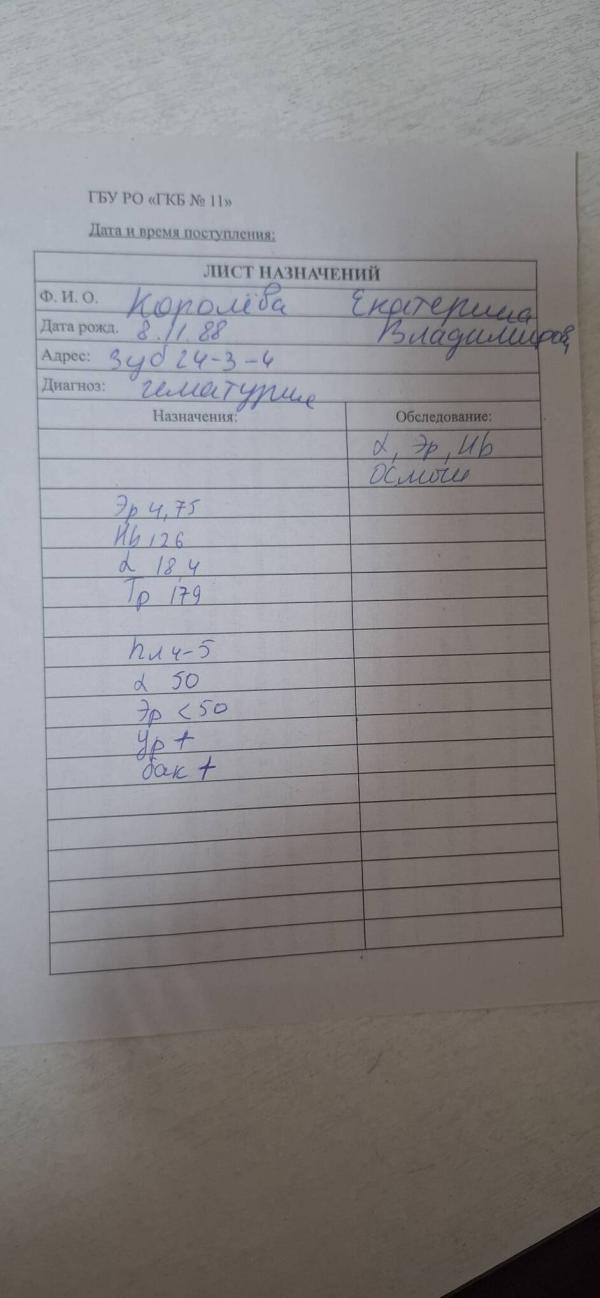 ГБУ РО «ГКБ № 11»
Дата и время поступления:
ЛИСТ НАЗНАЧЕНИЙ
Ф. И. О. Королёва Екатерина
Дата рожд. 8.11.88 Владимировн
Адрес: Зуб 24-3-4
Диагноз: гематурия
Назначения: Обследование:
L, Эр, Hb
ОСмочи
Эр 4,75
Hb 126
L 18,4
Тр 179
пл 4-5
L 50
Эр <50
Ур +
бак +